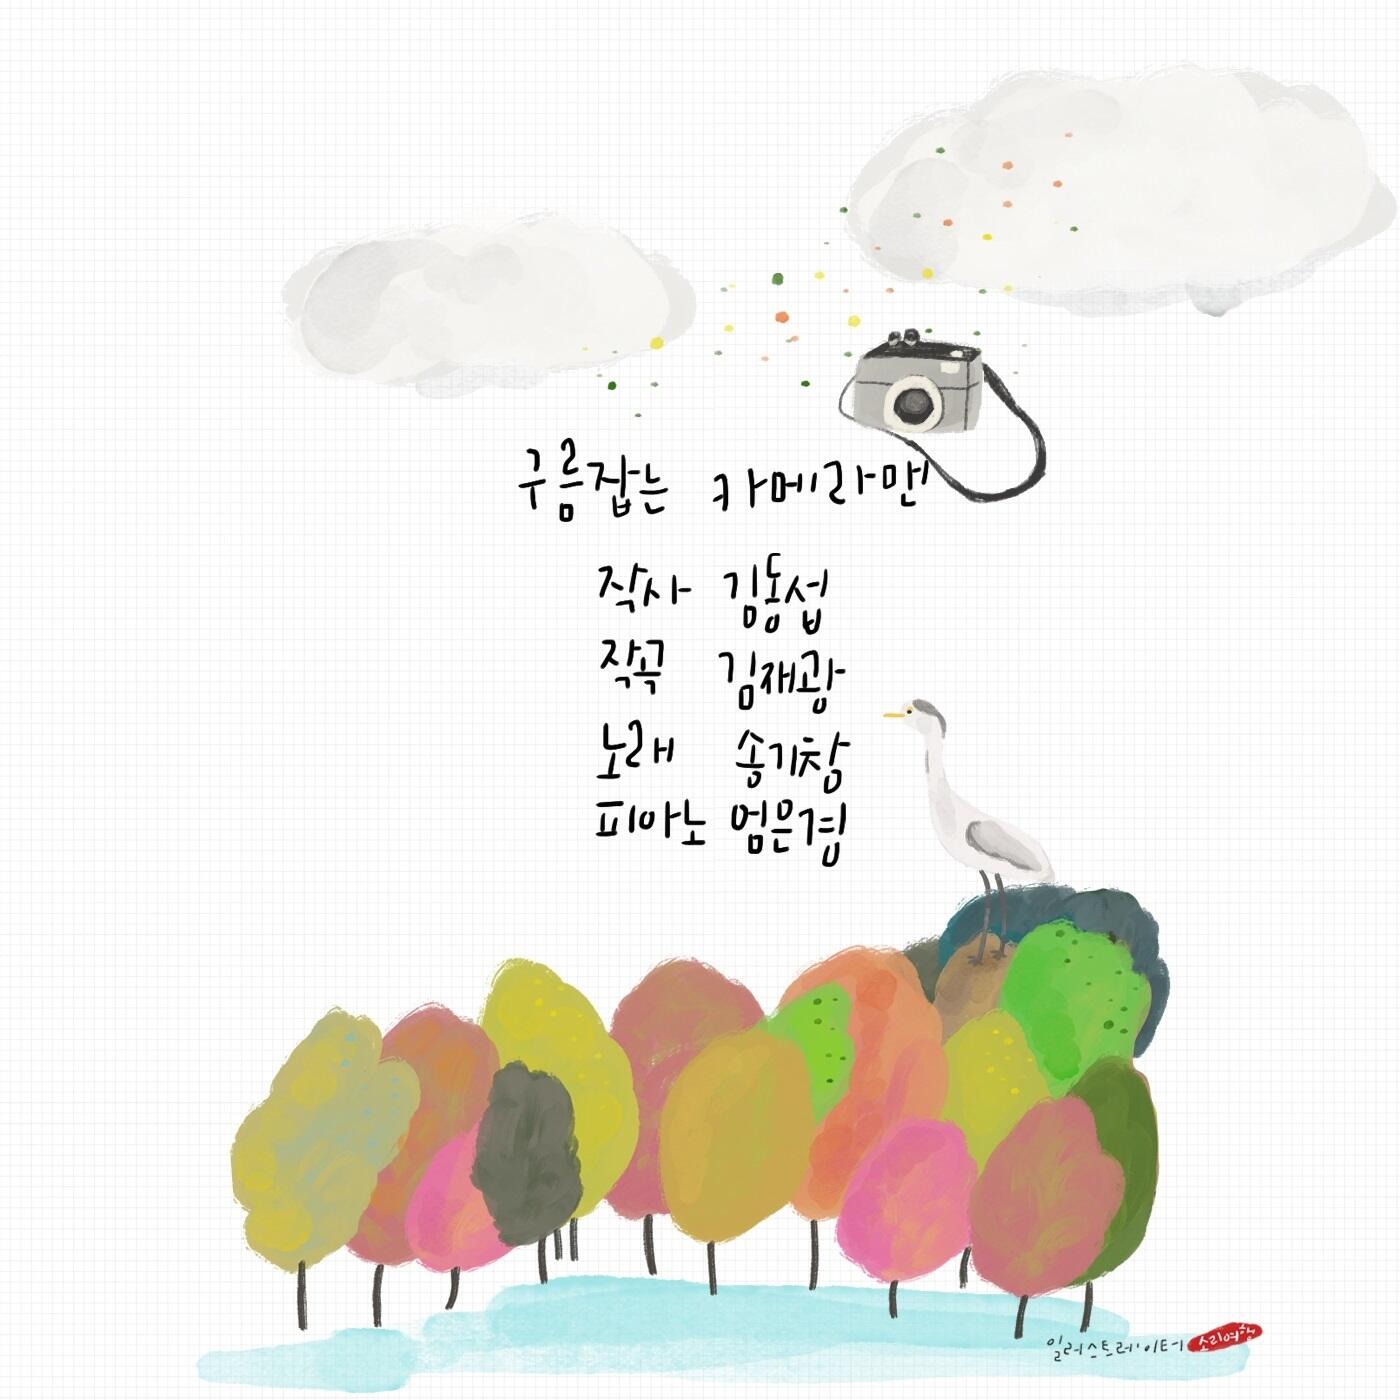 구름잡는 카메라맨
작사 김동섭
작곡 김재광
노래 송기창
피아노 엄은경
일러스트레이터 소리여행